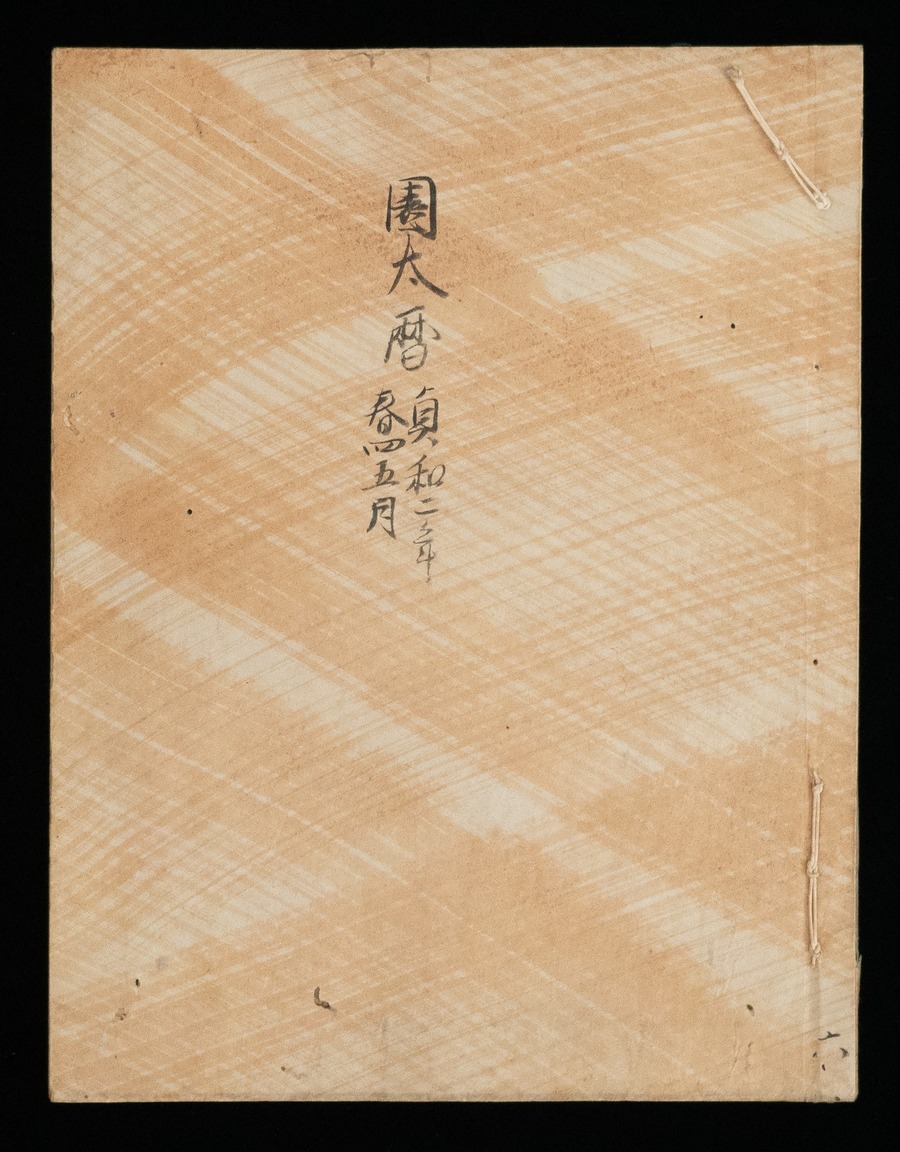 園太暦
貞和二年
春四五月
六